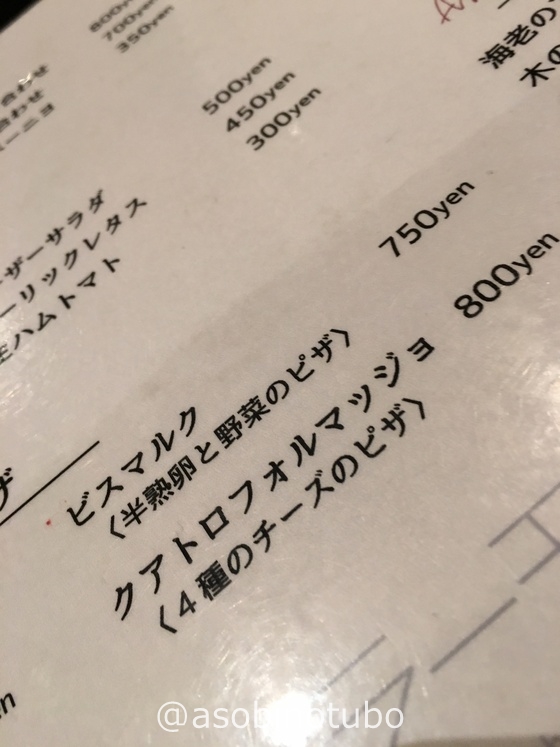 800yen
700yen
350yen
合わせ
合わせ
ーニョ
500yen
450yen
300yen
海老の
木の
ーザーサラダ
ーリックレタス
生ハムトマト
750yen
800yen
ビスマルク
〈半熟卵と野菜のピザ〉
クアトロフォルマッジョ
〈4種のチーズのピザ〉
ザ